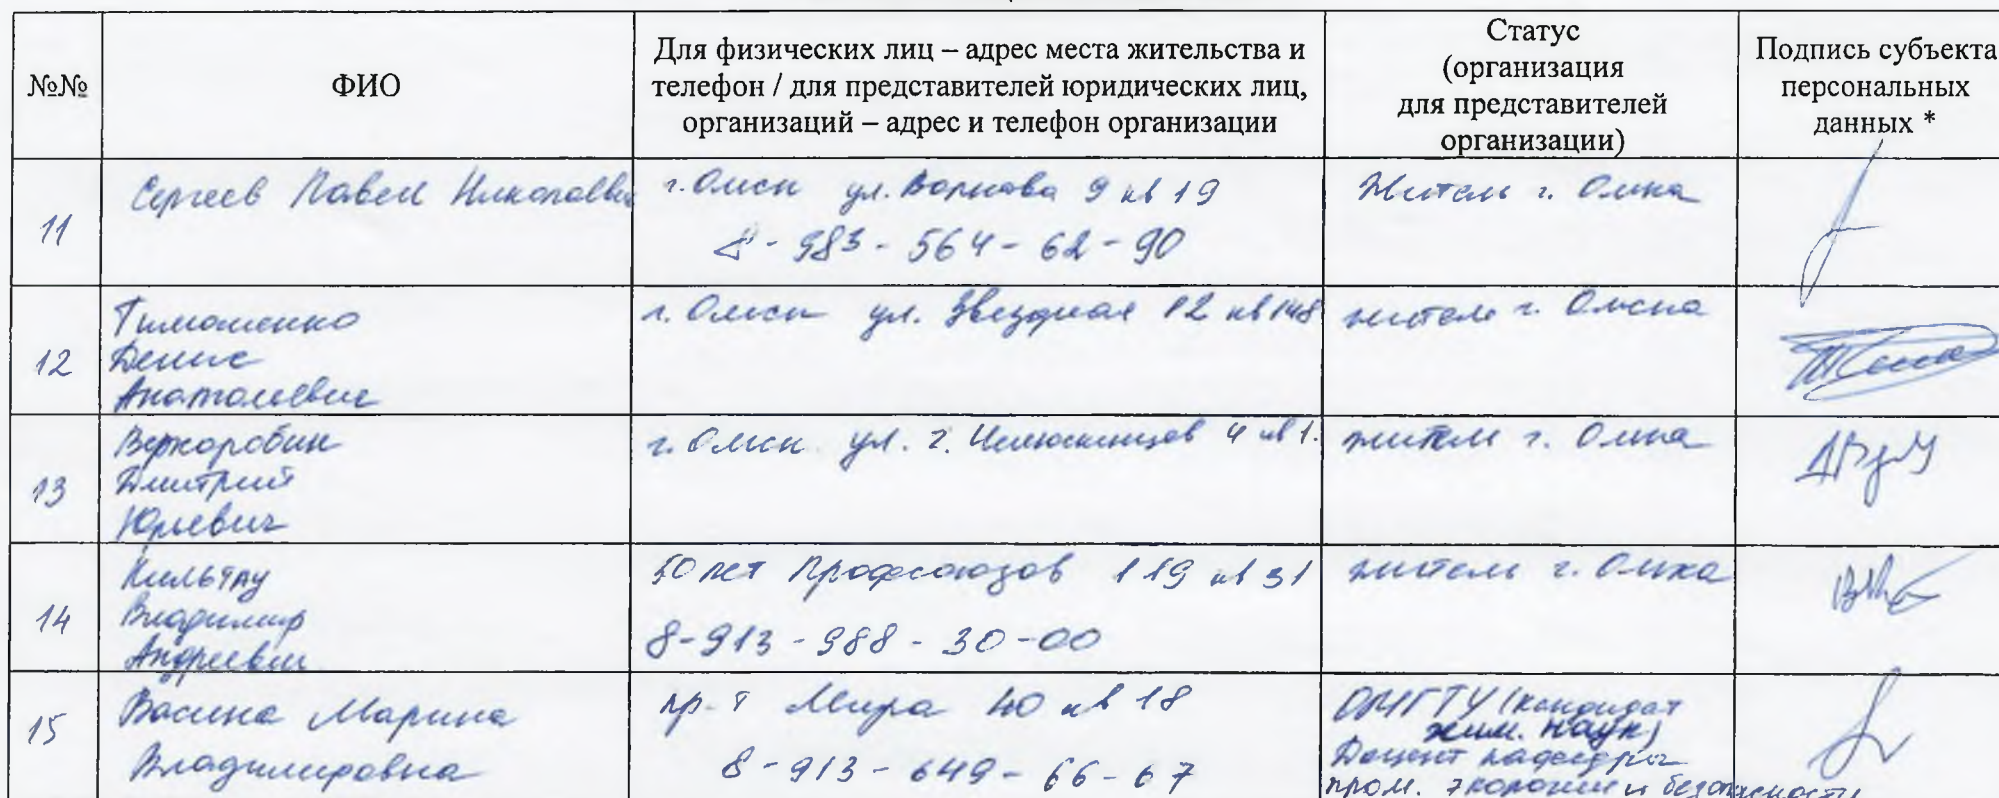 №№
ФИО
Для физических лиц – адрес места жительства и
телефон / для представителей юридических лиц,
организаций – адрес и телефон организации
Статус
(организация
для представителей
организации)
Подпись субъекта
персональных
данных *
11
Сергеев Павел Николаевич
г. Омск ул. 9 кв 19
8-983-564-62-90
Житель г. Омска
12
Тимошенко
Денис
Анатолевич
г. Омск ул. Звездная 12 кв 148
житель г. Омска
13
Верхоробин
Дмитрий
Юрьевич
г. Омск ул. 2. Челюскинцев 4 кв 1.
житель г. Омска
14
Владимир
Андреевич
50 лет Профсоюзов 119 кв 31
8-913-988-30-00
житель г. Омска
15
Васина Марина
Владимировна
пр-т Мира 40 кв 18
8-913-649-66-67
ОМГТУ (кандидат
хим. наук)
Доцент кафедры
пром. экологии и безопасности